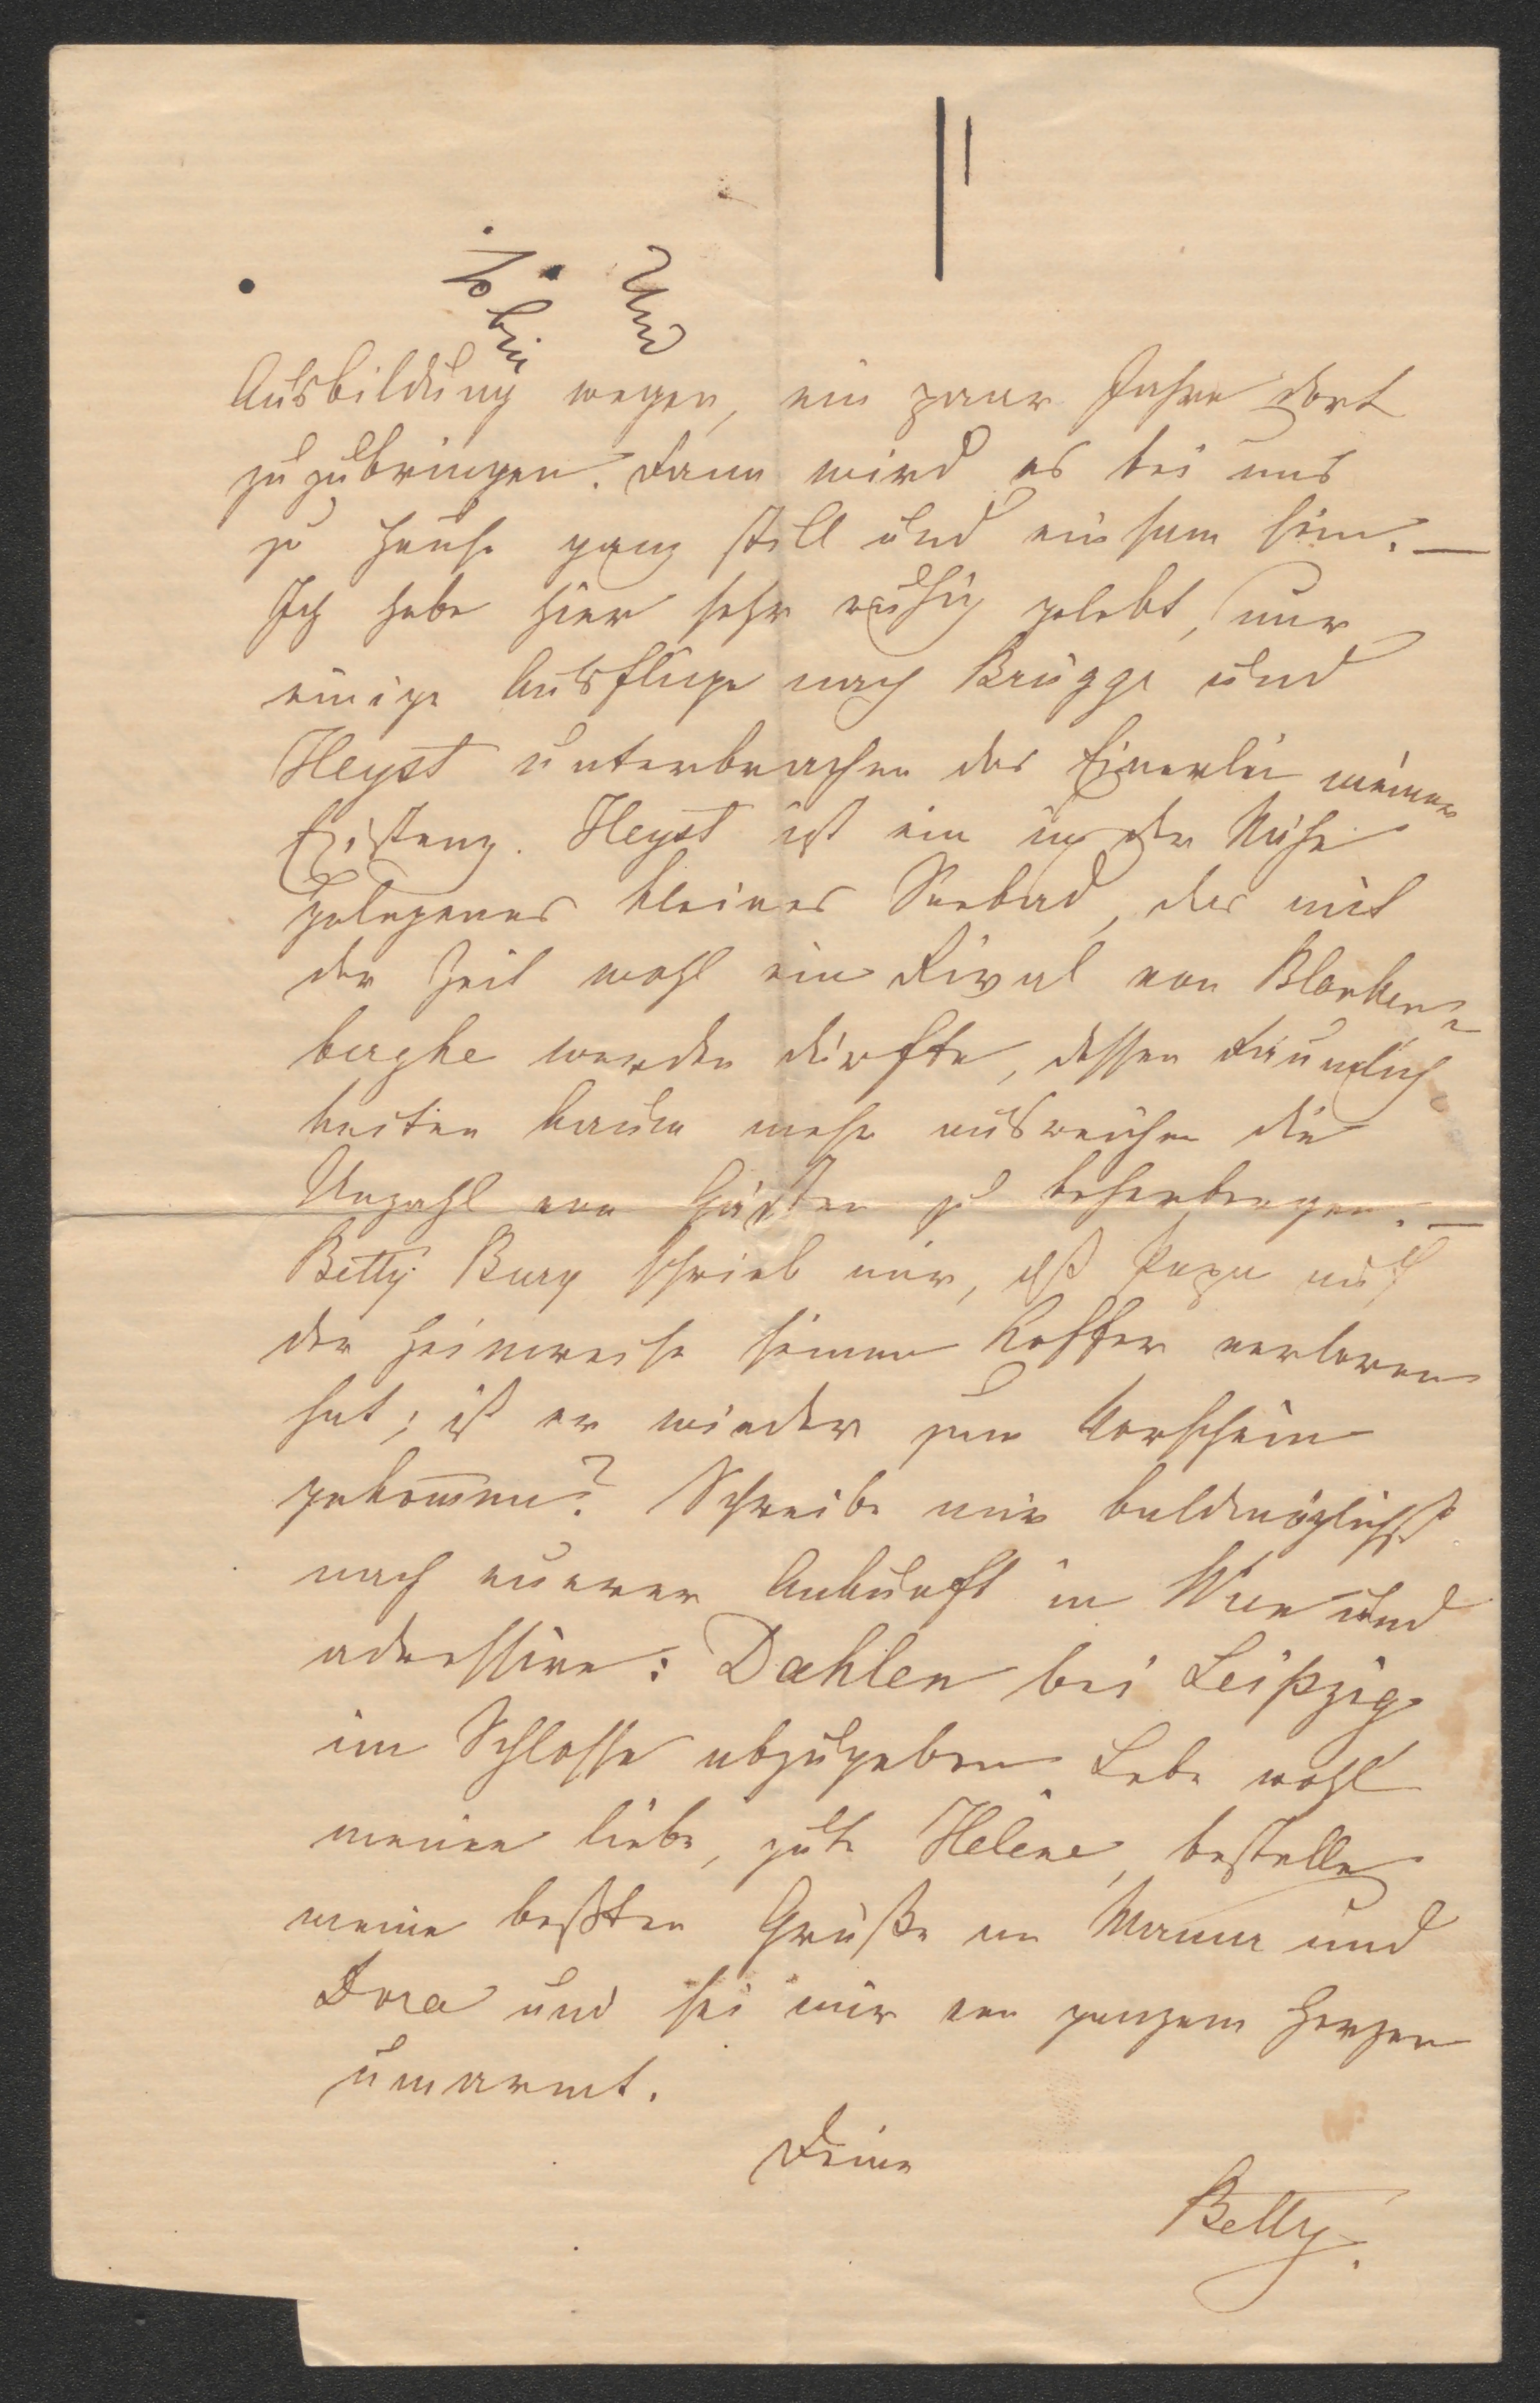 Und
Ausbildung wegen, ein paar Jahre dort
zuzubringen. Dann wird es bei uns
zu Hause ganz still und einsam sein. —
Ich habe hier sehr ruhig gelebt, nur
einige Ausflüge nach Brügge und
Heyst unterbrachen das Einerlei meiner
Existenz. Heyst ist ein in der Nähe
gelegenes kleines Seebad, das mit
der Zeit wohl ein Rival von Blanken-
berghe werden dürfte, dessen Räumlich
keiten kaum mehr ausreichen die
Unzahl von Gästen zu beherbergen. —
Betty Burg schrieb mir, daß Papa auf
der Heimreise seinen Koffer verloren
hat; ist er wieder zum Vorschein
gekom̅en? Schreibe mir baldmöglichst
nach eurer Ankunft in Wien und
adressire: Dahlen bei Leipzig
im Schlosse abzugeben. Lebe wohl
meine liebe, gute Helene, bestelle
meine beßten Grüße an Mama und
Dora und sei mir von ganzem Herzen
umarmt.
Deine
Betty.